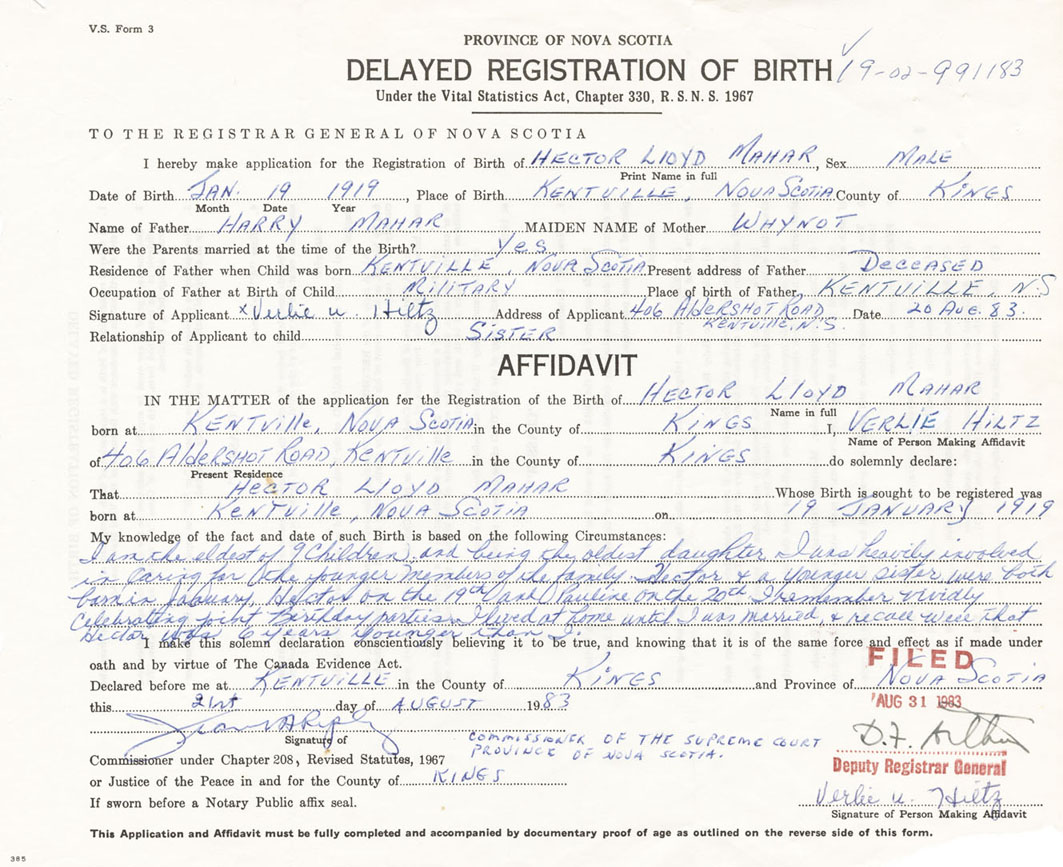 V.S. Form 3
PROVINCE OF NOVA SCOTIA
DELAYED REGISTRATION OF BIRTH 19-02-991183
Under the Vital Statistics Act, Chapter 330, R.S.N.S. 1967
TO THE REGISTRAR GENERAL OF NOVA SCOTIA
I hereby make application for the Registration of Birth of HECTOR LLOYD MAHAR, Sex MALE
Print Name in full
Date of Birth JAN. 19 1919, Place of Birth KENTVILLE, NOVA SCOTIA County of KINGS
Month Date Year
Name of Father HARRY MAHAR MAIDEN NAME of Mother WHYNOT
Were the Parents married at the time of the Birth? Yes
Residence of Father when Child was born KENTVILLE, NOVA SCOTIA Present address of Father DECEASED
Occupation of Father at Birth of Child MILITARY Place of birth of Father KENTVILLE, N.S
Signature of Applicant x Verlie u. Hiltz Address of Applicant 406 AldERSHOT ROAD, Date 20 AUG. 83.
KENTVILLE, N.S.
Relationship of Applicant to child SISTER
AFFIDAVIT
IN THE MATTER of the application for the Registration of the Birth of HECTOR LLOYD MAHAR
Name in full
born at KENTVille, NOVA SCOTIA in the County of KINGS I, VERLIE HILTZ
Name of Person Making Affidavit
of 406 AldERSHOT ROAD, KENTVille in the County of KINGS do solemnly declare:
Present Residence
That HECTOR LLOYD MAHAR Whose Birth is sought to be registered was
born at KENTVille, NOVA SCOTIA on 19 JANUARY 1919
My knowledge of the fact and date of such Birth is based on the following Circumstances:
I am the eldest of 9 Children, and being the oldest daughter I was heavily involved
in caring for the younger members of the family. Hector & a younger sister were both
born in January, Hector on the 19th and Pauline on the 20th I remember vividly
celebrating joint Birthday parties. I lived at home until I was married, & recall well that
Hector was 6 years younger than I.
I make this solemn declaration conscientiously believing it to be true, and knowing that it is of the same force and effect as if made under
oath and by virtue of The Canada Evidence Act.
FILED
Declared before me at KENTVILLE in the County of KINGS and Province of NOVA SCOTIA
this 21st day of AUGUST 1983
AUG 31 1983
Signature of
COMMISSIONER OF THE SUPREME COURT
PROVINCE OF NOVA SCOTIA.
Commissioner under Chapter 208, Revised Statutes, 1967
Deputy Registrar General
or Justice of the Peace in and for the County of KINGS
Verlie u. Hiltz
If sworn before a Notary Public affix seal.
Signature of Person Making Affidavit
This Application and Affidavit must be fully completed and accompanied by documentary proof of age as outlined on the reverse side of this form.
385